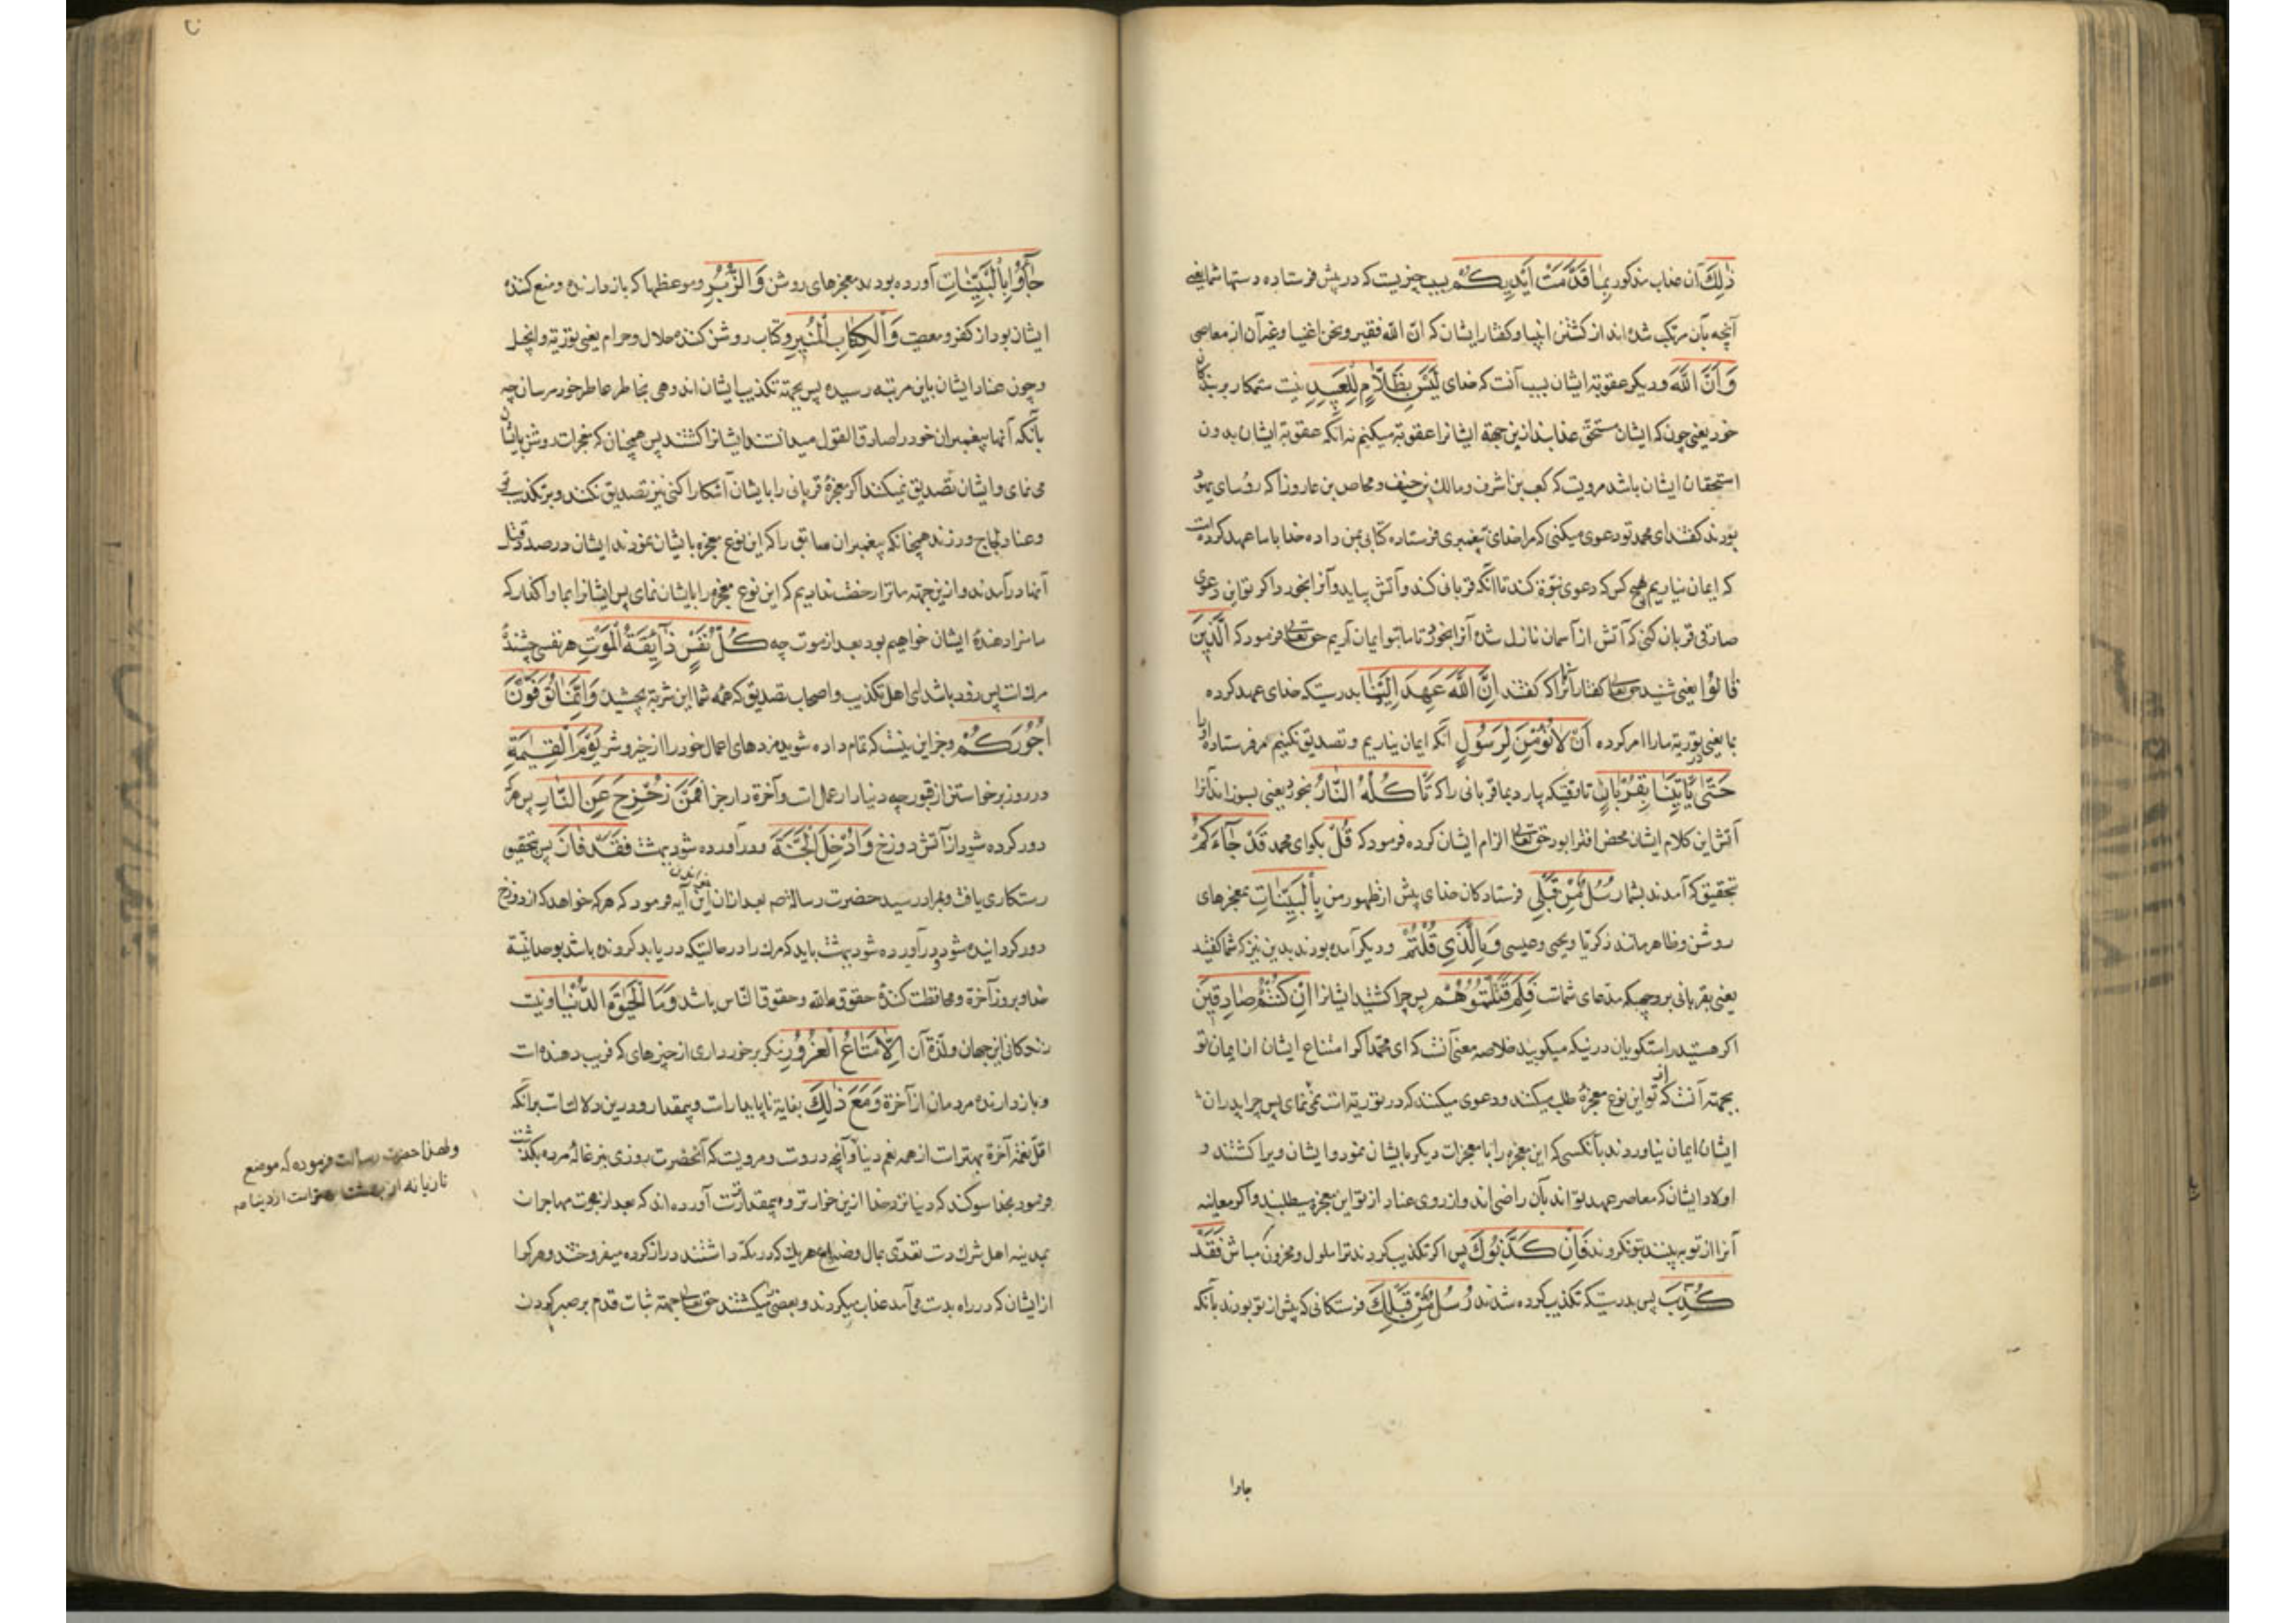 ذٰلِكَ آن عذاب مذکور بِمٰا قَدَّمَتْ اَیْدِیكُمْ بسبب چیزیست که در پیش فرستاده دستهاء شما یعنی
آنچه بآن مرتکب شده اند از کشتن انبیا و گفتار ایشان که ان الله فقیر و نحن اغنیا و غیر آن از معاصی
وَ اَنَّ اللّٰهَ و دیگر عقوبة ایشان بسبب آنست که خدای لَیْسَ بِظَلّٰامٍ لِلْعَبِیدِ نیست ستمکار بر بندگان
خود یعنی چون که ایشان مستحق عذابند ازین جهة ایشانرا عقوبة میکنیم نه آنکه عقوبة ایشان بدون
استحقاق ایشان باشد مرویست که کعب بن اشرف و مالك بن و بن عازورا که رؤسای یهود
بودند گفتند ای محمد تو دعوی میکنی که مرا خدای به پیغمبری فرستاده کتابی بمن داده خدا با ما عهد کرده است
که ایمان نیاریم بهیچ کس که دعوی نبوة کند تا آنکه قربانی کند و آتش بیاید و آنرا بخورد اگر تو این دعوی
صادقی قربان کنی که آتش از آسمان نازل شده آنرا بخورد تا ما بتو ایمان آریم حق تعالی فرمود که اَلَّذِینَ
قٰالُوا یعنی شنید حق تعالی گفتار آنرا که گفتند اِنَّ اللّٰهَ عَهِدَ اِلَیْنٰا بدرستیکه خدای عهد کرده
بما یعنی در توریة ما را امر کرده اَنْ لٰا نُؤْمِنَ لِرَسُولٍ آنکه ایمان نیاریم و تصدیق نکنیم مر فرستاده او را
حَتّٰی یَأْتِیَنٰا بِقُرْبٰانٍ تا وقتیکه بیارد بما قربانی را که تَأْكُلُهُ النّٰارُ بخورد یعنی بسوزاند آنرا
آتش این کلام ایشان محض افترا بود حق تعالی الزام ایشان کرده فرمود که قُلْ بگو ای محمد قَدْ جٰاءَكُمْ
تحقیق که آمدند بشما رُسُلٌ مِنْ قَبْلِی فرستادگان خدای پیش از ظهور من بِالْبَیِّنٰاتِ بمعجزهای
روشن و ظاهر مانند زکریا و یحیی و عیسی وَ بِالَّذِی قُلْتُمْ و دیگر آمده بودند بدین نیز که شما گفتید
یعنی بقربانی بر وجهیکه مدعای شماست فَلِمَ قَتَلْتُمُوهُمْ پس چرا کشتید ایشانرا اِنْ كُنْتُمْ صٰادِقِینَ
اگر هستید راستگویان در نیکه میگویید خلاصه معنی آنست که ای محمد اگر امتناع ایشان از ایمان تو
بجهته آنست که از تو این نوع معجزهٔ طلب میکنند و دعوی میکنند که در توریة است نمی نمای پس چرا پدران
ایشان ایمان نیاوردند بآنکسی که این معجزه را با معجزات دیگر بایشان نمود و ایشان ویرا کشتند و
اولاد ایشان که معاصر عهد تو اند بآن راضی اند و از روی عناد از تو این معجزه میطلبند و اگر معاینه
آنرا از تو به بینند بتو نگروند فَاِنْ كَذَّبُوكَ پس اگر تکذیب کردند ترا ملول و محزون مباش فَقَدْ
كُذِّبَ پس بدرستیکه تکذیب کرده شدند رُسُلٌ مِنْ قَبْلِكَ فرستگانی که پیش از تو بودند بآنکه
جاوا
جٰاؤُا بِالْبَیِّنٰاتِ آورده بودند معجزهای روشن وَ الزُّبُرِ و موعظها که باز دارنده و منع کننده
ایشان بود از کفر و معصیت وَ الْكِتٰابِ الْمُنِیرِ و کتاب روشن کننده حلال و حرام یعنی توریة و انجیل
و چون عناد ایشان باین مرتبه رسیده پس بجهته تکذیب ایشان اندوهی بخاطر عاطر خود مرسان چه
بآنکه آنها پیغمبران خود را صادق القول میدانستند ایشانرا کشتند پس همچنان که معجزات روشن بایشان
می نمای و ایشان تصدیق نمیکنند اگر معجزهٔ قربانی را بایشان آشکارا کنی نیز تصدیق نکنند و بر تکذیب تو
و عناد و لجاج ورزند همچنانکه پیغمبران سابق را که این نوع معجزه بایشان نمودند ایشان در صدد قتل
آنها در آمدند و ازین جهته ما ترا رخصت ندادیم که این نوع معجزه را بایشان نمای پس ایشانرا بما واگذار که
ما سزا دهندهٔ ایشان خواهیم بود بعد از موت چه كُلُّ نَفْسٍ ذٰائِقَةُ الْمَوْتِ هر نفسی چشندهٔ
مرك است پس زود باشد ای اهل تکذیب و اصحاب تصدیق که همه شما این شربة بچشید وَ اِنَّمٰا تُوَفَّوْنَ
اُجُورَكُمْ و جز این نیست که تمام داده شوید مزدهای اعمال خود را از خیر و شر یَوْمَ الْقِیٰمَةِ
در روز برخواستن از قبور چه دنیا دار عمل است و آخرة دار جزا فَمَنْ زُحْزِحَ عَنِ النّٰارِ پس هر که
دور کرده شود از آتش دوزخ وَ اُدْخِلَ الْجَنَّةَ و در آورده شود ببهشت فَقَدْ فٰازَ پس تحقیق
رستکاری یافت و بمراد رسید حضرت رسالة صم بعد از این آیه فرمود که هر که خواهد که از دوزخ
دور گردانیده شود و در آورده شود ببهشت باید که مرك را در حالتیکه در یابد گرونده باشد بوحدانیة
خدا و بروز آخرة و محافظت کنندهٔ حقوق الله و حقوق الناس باشد وَ مَا الْحَیٰوةُ الدُّنْیٰا و نیست
زندکانی این جهان و لذة آن اِلّٰا مَتٰاعُ الْغُرُورِ مکر برخورداری از چیزهای که فریب دهنده است
و باز دارنده مردمان از آخرة وَ مَعَ ذٰلِكَ بغایة ناپایدار است و بیمقدار و درین دلالت است بر آنکه
اقل نعمة آخرة بهتر است از همه نعم دنیا و آنچه دروست و مرویست که آنحضرت روزی ببزغالهٔ مرده بگذشت
فرمود بخدا سوگند که دنیا نزد خدا ازین خوارتر و بیمقدارتست آورده اند که بعد از هجرت مهاجران
بمدینه اهل شرك دست تعدی بمال و ضیاع هر یك که در مکه داشتند دراز کرده میفروختند و هر کرا
از ایشان که در راه بدست می آمد عذاب میکردند و بعضی میکشتند حق تعالی جهته ثبات قدم بر صبر کردن
ولهذا حضرت رسالت فرموده که موضع
تازیانه از بهشت بهتر است از دنیا